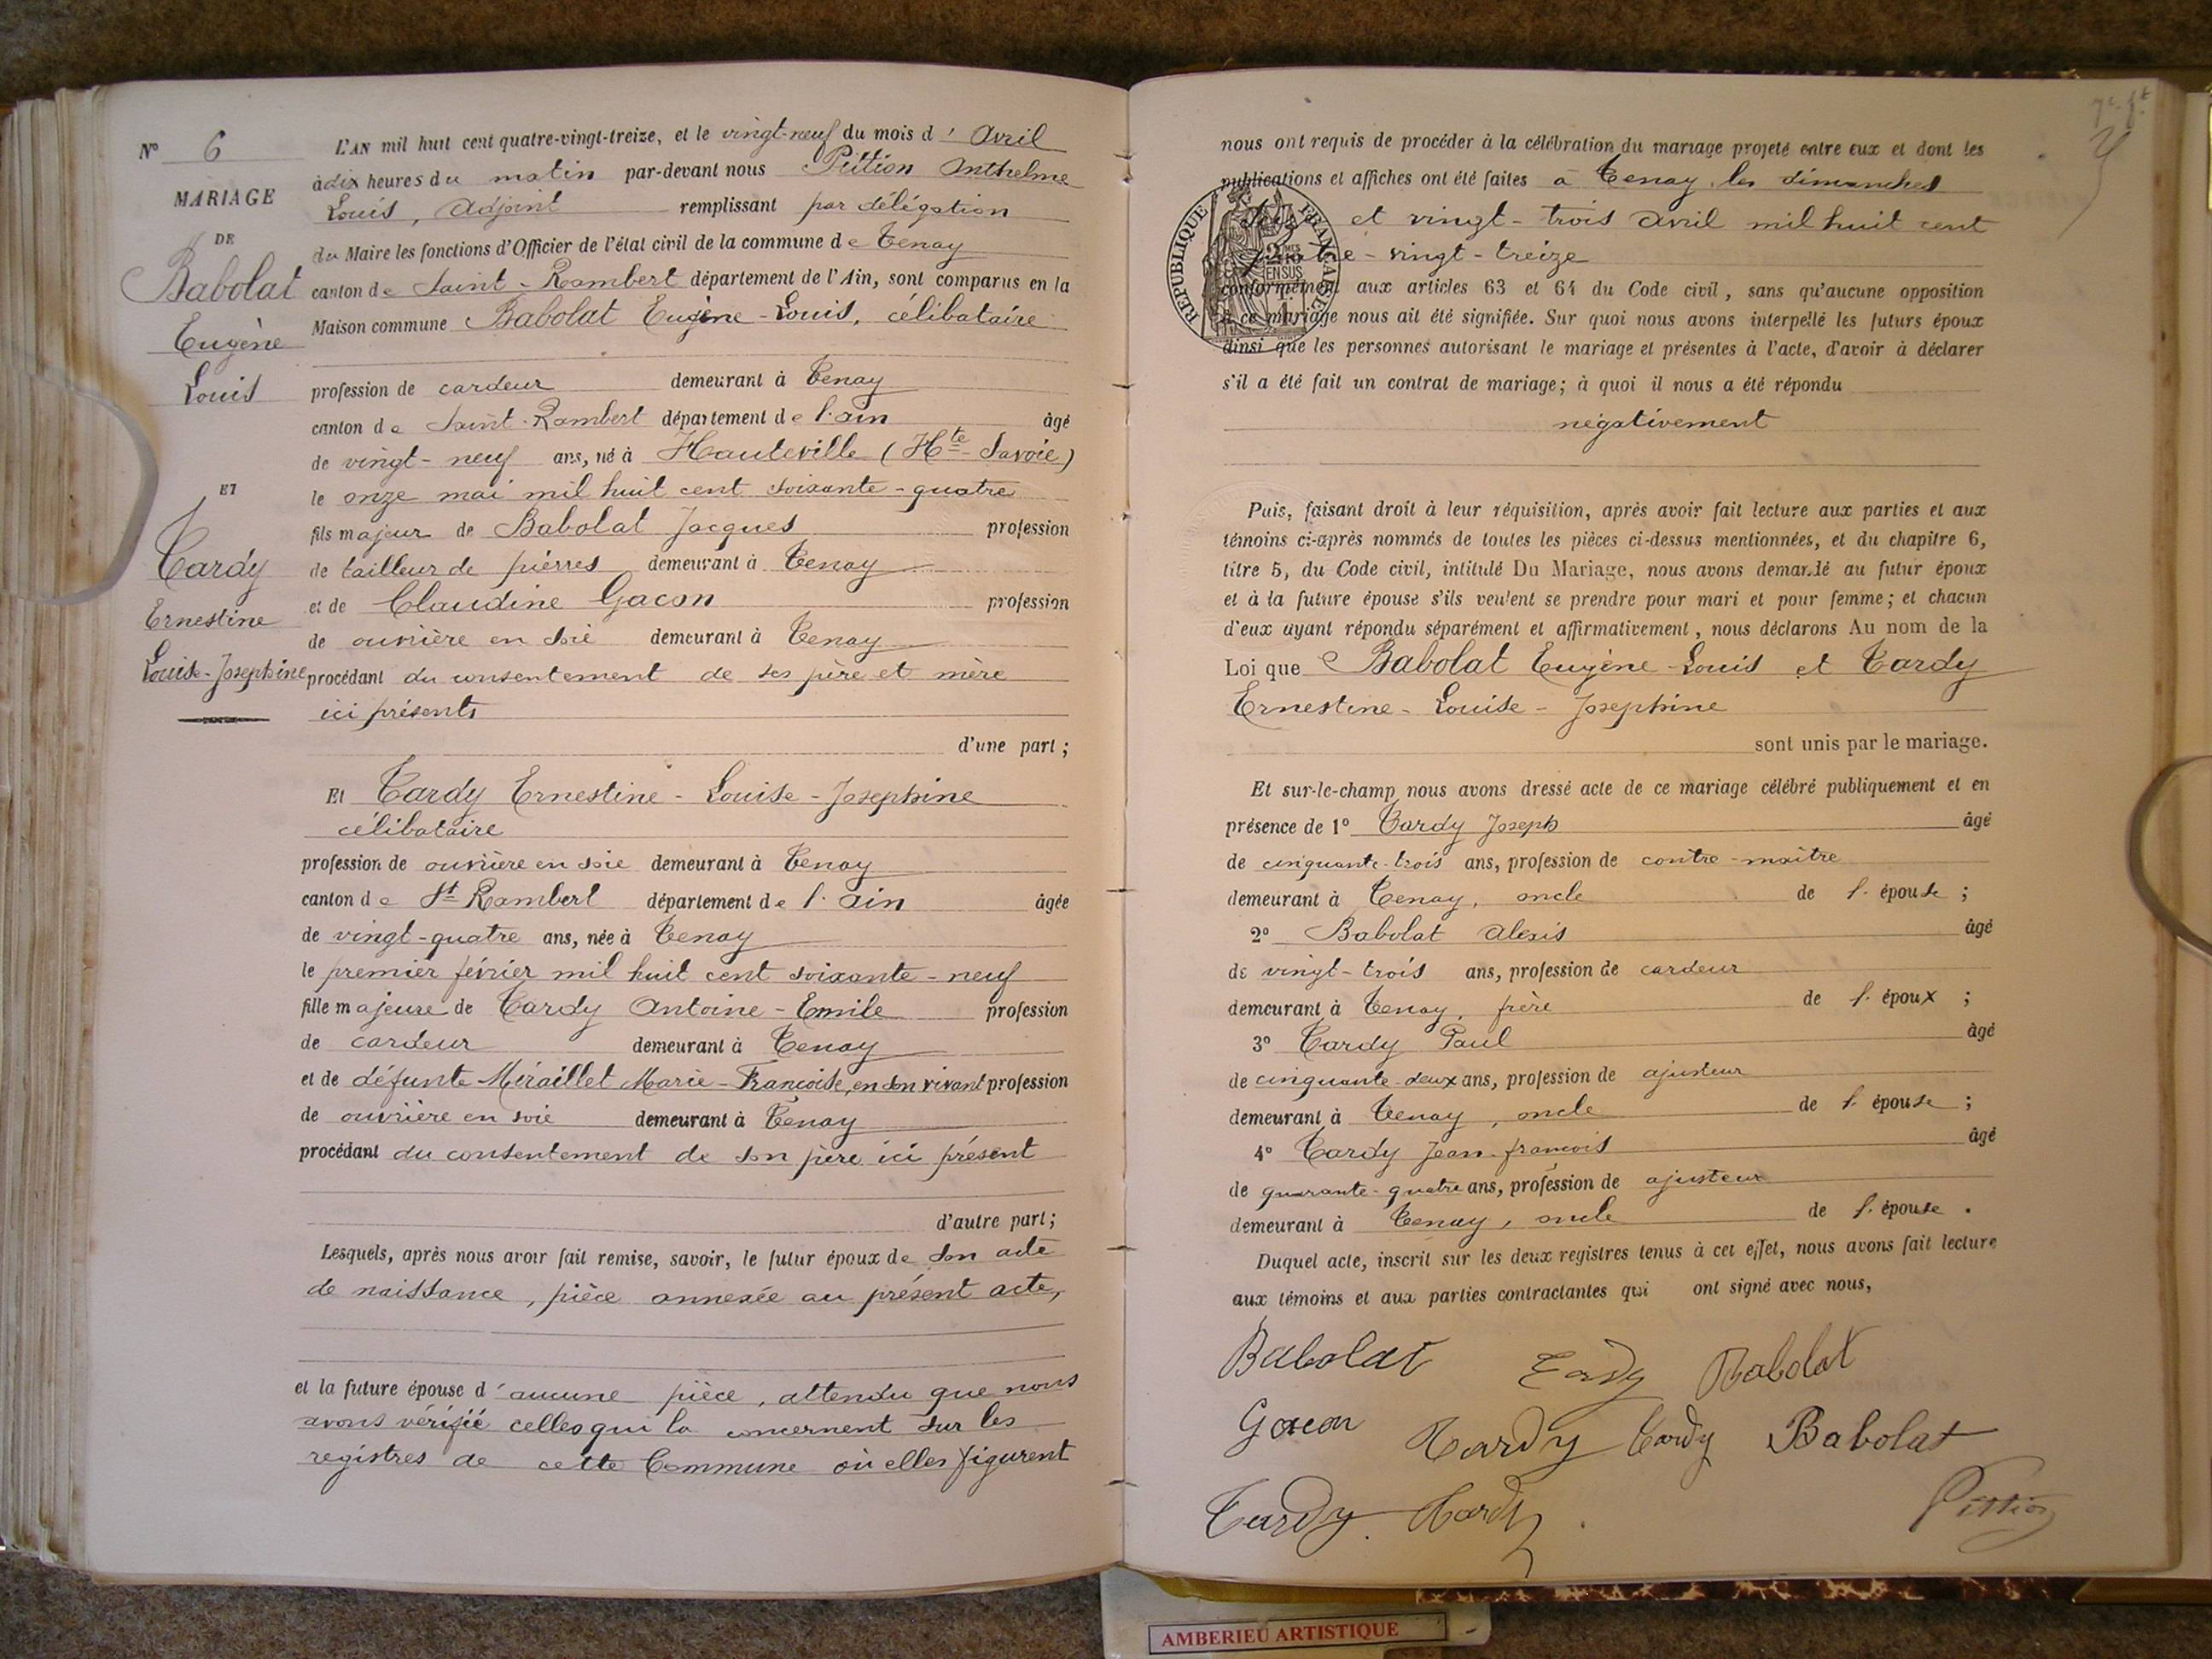 N° 6
MARIAGE
DE
Babolat
Eugène
Louis
ET
Tardy
Ernestine
Louise-Josephine
L'AN mil huit cent quatre-vingt-treize, et le vingt-neuf du mois d'Avril
à dix heures du matin par-devant nous Pittion Anthelme
Louis, Adjoint remplissant par délégation
du Maire les fonctions d'Officier de l'état civil de la commune de Tenay
canton de Saint-Rambert département de l'Ain, sont comparus en la
Maison commune Babolat Eugène-Louis, célibataire
profession de cardeur demeurant à Tenay
canton de Saint-Rambert département de l'ain âgé
de vingt-neuf ans, né à Hauteville (Hte Savoie)
le onze mai mil huit cent soixante-quatre
fils majeur de Babolat Jacques profession
de tailleur de pierres demeurant à Tenay
et de Claudine Gacon profession
de ouvrière en soie demeurant à Tenay
procédant du consentement de ses père et mère
ici présents
d'une part;
Et Tardy Ernestine-Louise-Josephine
célibataire
profession de ouvrière en soie demeurant à Tenay
canton de St Rambert département de l'ain âgée
de vingt-quatre ans, née à Tenay
le premier février mil huit cent soixante-neuf
fille majeure de Tardy Antoine-Emile profession
de cardeur demeurant à Tenay
et de défunte Miraillet Marie-Francoise, en son vivant profession
de ouvrière en soie demeurant à Tenay
procédant du consentement de son père ici présent
d'autre part;
Lesquels, après nous avoir fait remise, savoir, le futur époux de son acte
de naissance, pièce annexée au présent acte,
et la future épouse d'aucune pièce, attendu que nous
avons vérifié celles qui la concernent sur les
registres de cette Commune où elles figurent
nous ont requis de procéder à la célébration du mariage projeté entre eux et dont les
publications et affiches ont été faites à Tenay, les dimanches
et vingt-trois avril mil huit cent
quatre-vingt-treize
conformément aux articles 63 et 64 du Code civil, sans qu'aucune opposition
à ce mariage nous ait été signifiée. Sur quoi nous avons interpellé les futurs époux
ainsi que les personnes autorisant le mariage et présentes à l'acte, d'avoir à déclarer
s'il a été fait un contrat de mariage; à quoi il nous a été répondu
négativement
RÉPUBLIQUE FRANÇAISE
Puis, faisant droit à leur réquisition, après avoir fait lecture aux parties et aux
témoins ci-après nommés de toutes les pièces ci-dessus mentionnées, et du chapitre 6,
titre 5, du Code civil, intitulé Du Mariage, nous avons demandé au futur époux
et à la future épouse s'ils veulent se prendre pour mari et pour femme; et chacun
d'eux ayant répondu séparément et affirmativement, nous déclarons Au nom de la
Loi que Babolat Eugène-Louis et Tardy
Ernestine-Louise-Josephine
sont unis par le mariage.
Et sur-le-champ nous avons dressé acte de ce mariage célébré publiquement et en
présence de 1° Tardy Joseph âgé
de cinquante-trois ans, profession de contre-maître
demeurant à Tenay, oncle de l'épouse;
2° Babolat Alexis âgé
de vingt-trois ans, profession de cardeur
demeurant à Tenay, frère de l'époux;
3° Tardy Paul âgé
de cinquante-deux ans, profession de ajusteur
demeurant à Tenay, oncle de l'épouse;
4° Tardy Jean-francois âgé
de quarante-quatre ans, profession de ajusteur
demeurant à Tenay, oncle de l'épouse.
Duquel acte, inscrit sur les deux registres tenus à cet effet, nous avons fait lecture
aux témoins et aux parties contractantes qui ont signé avec nous,
Babolat Tardy Babolat
Gacon Tardy Tardy Babolat
Tardy Tardy Pittion
AMBERIEU ARTISTIQUE